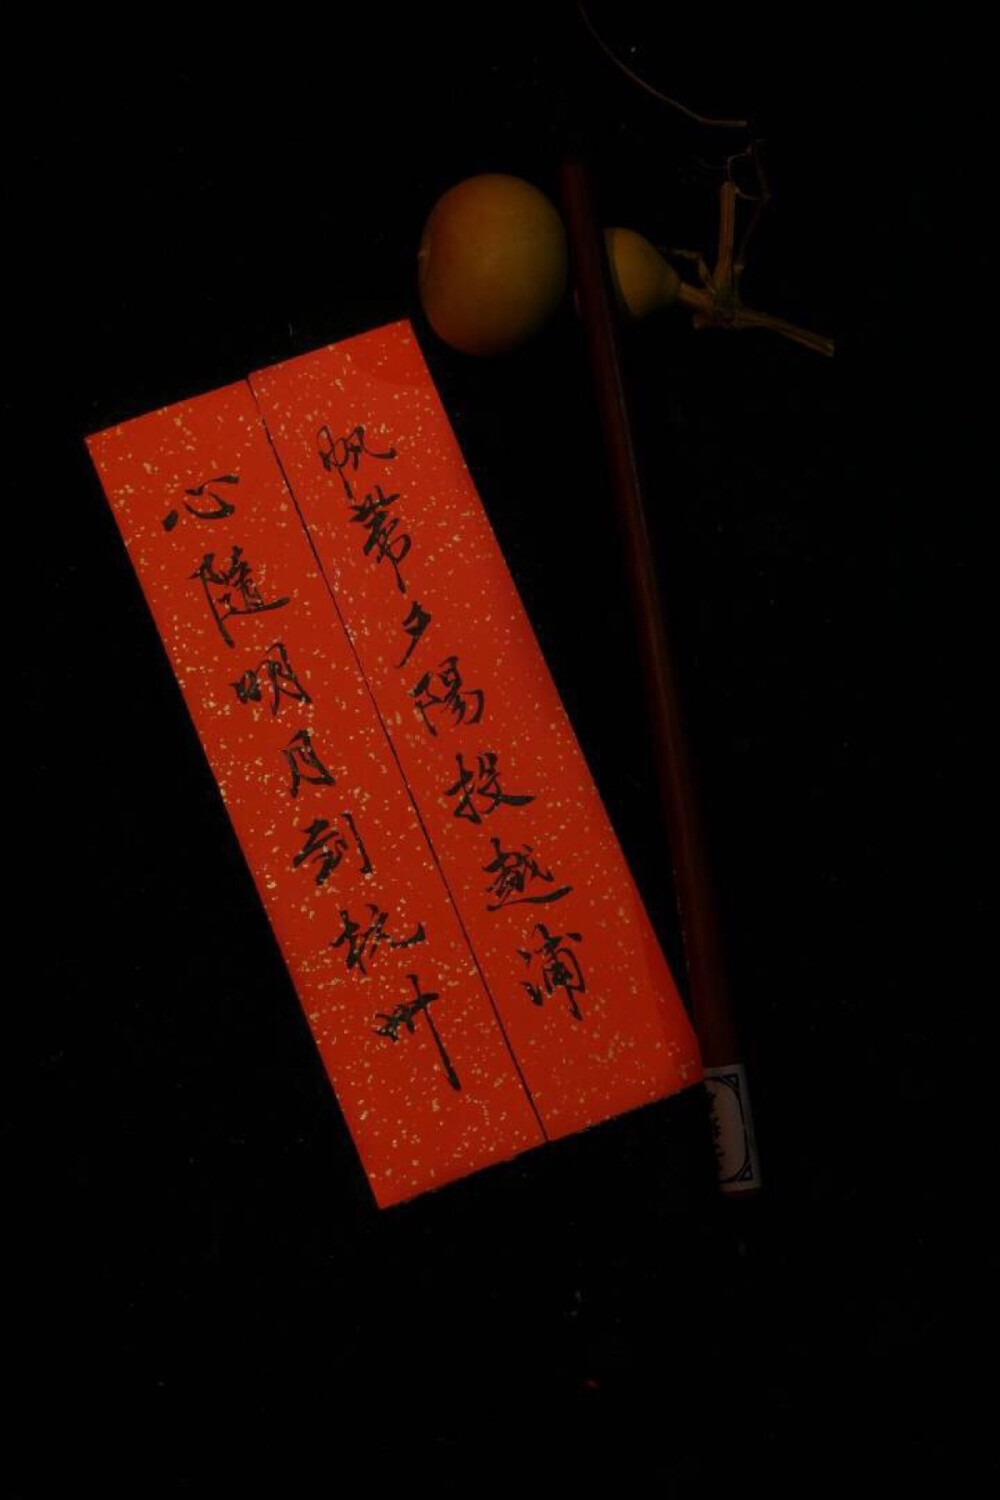 帆帶夕陽投越浦
心隨明月到杭州